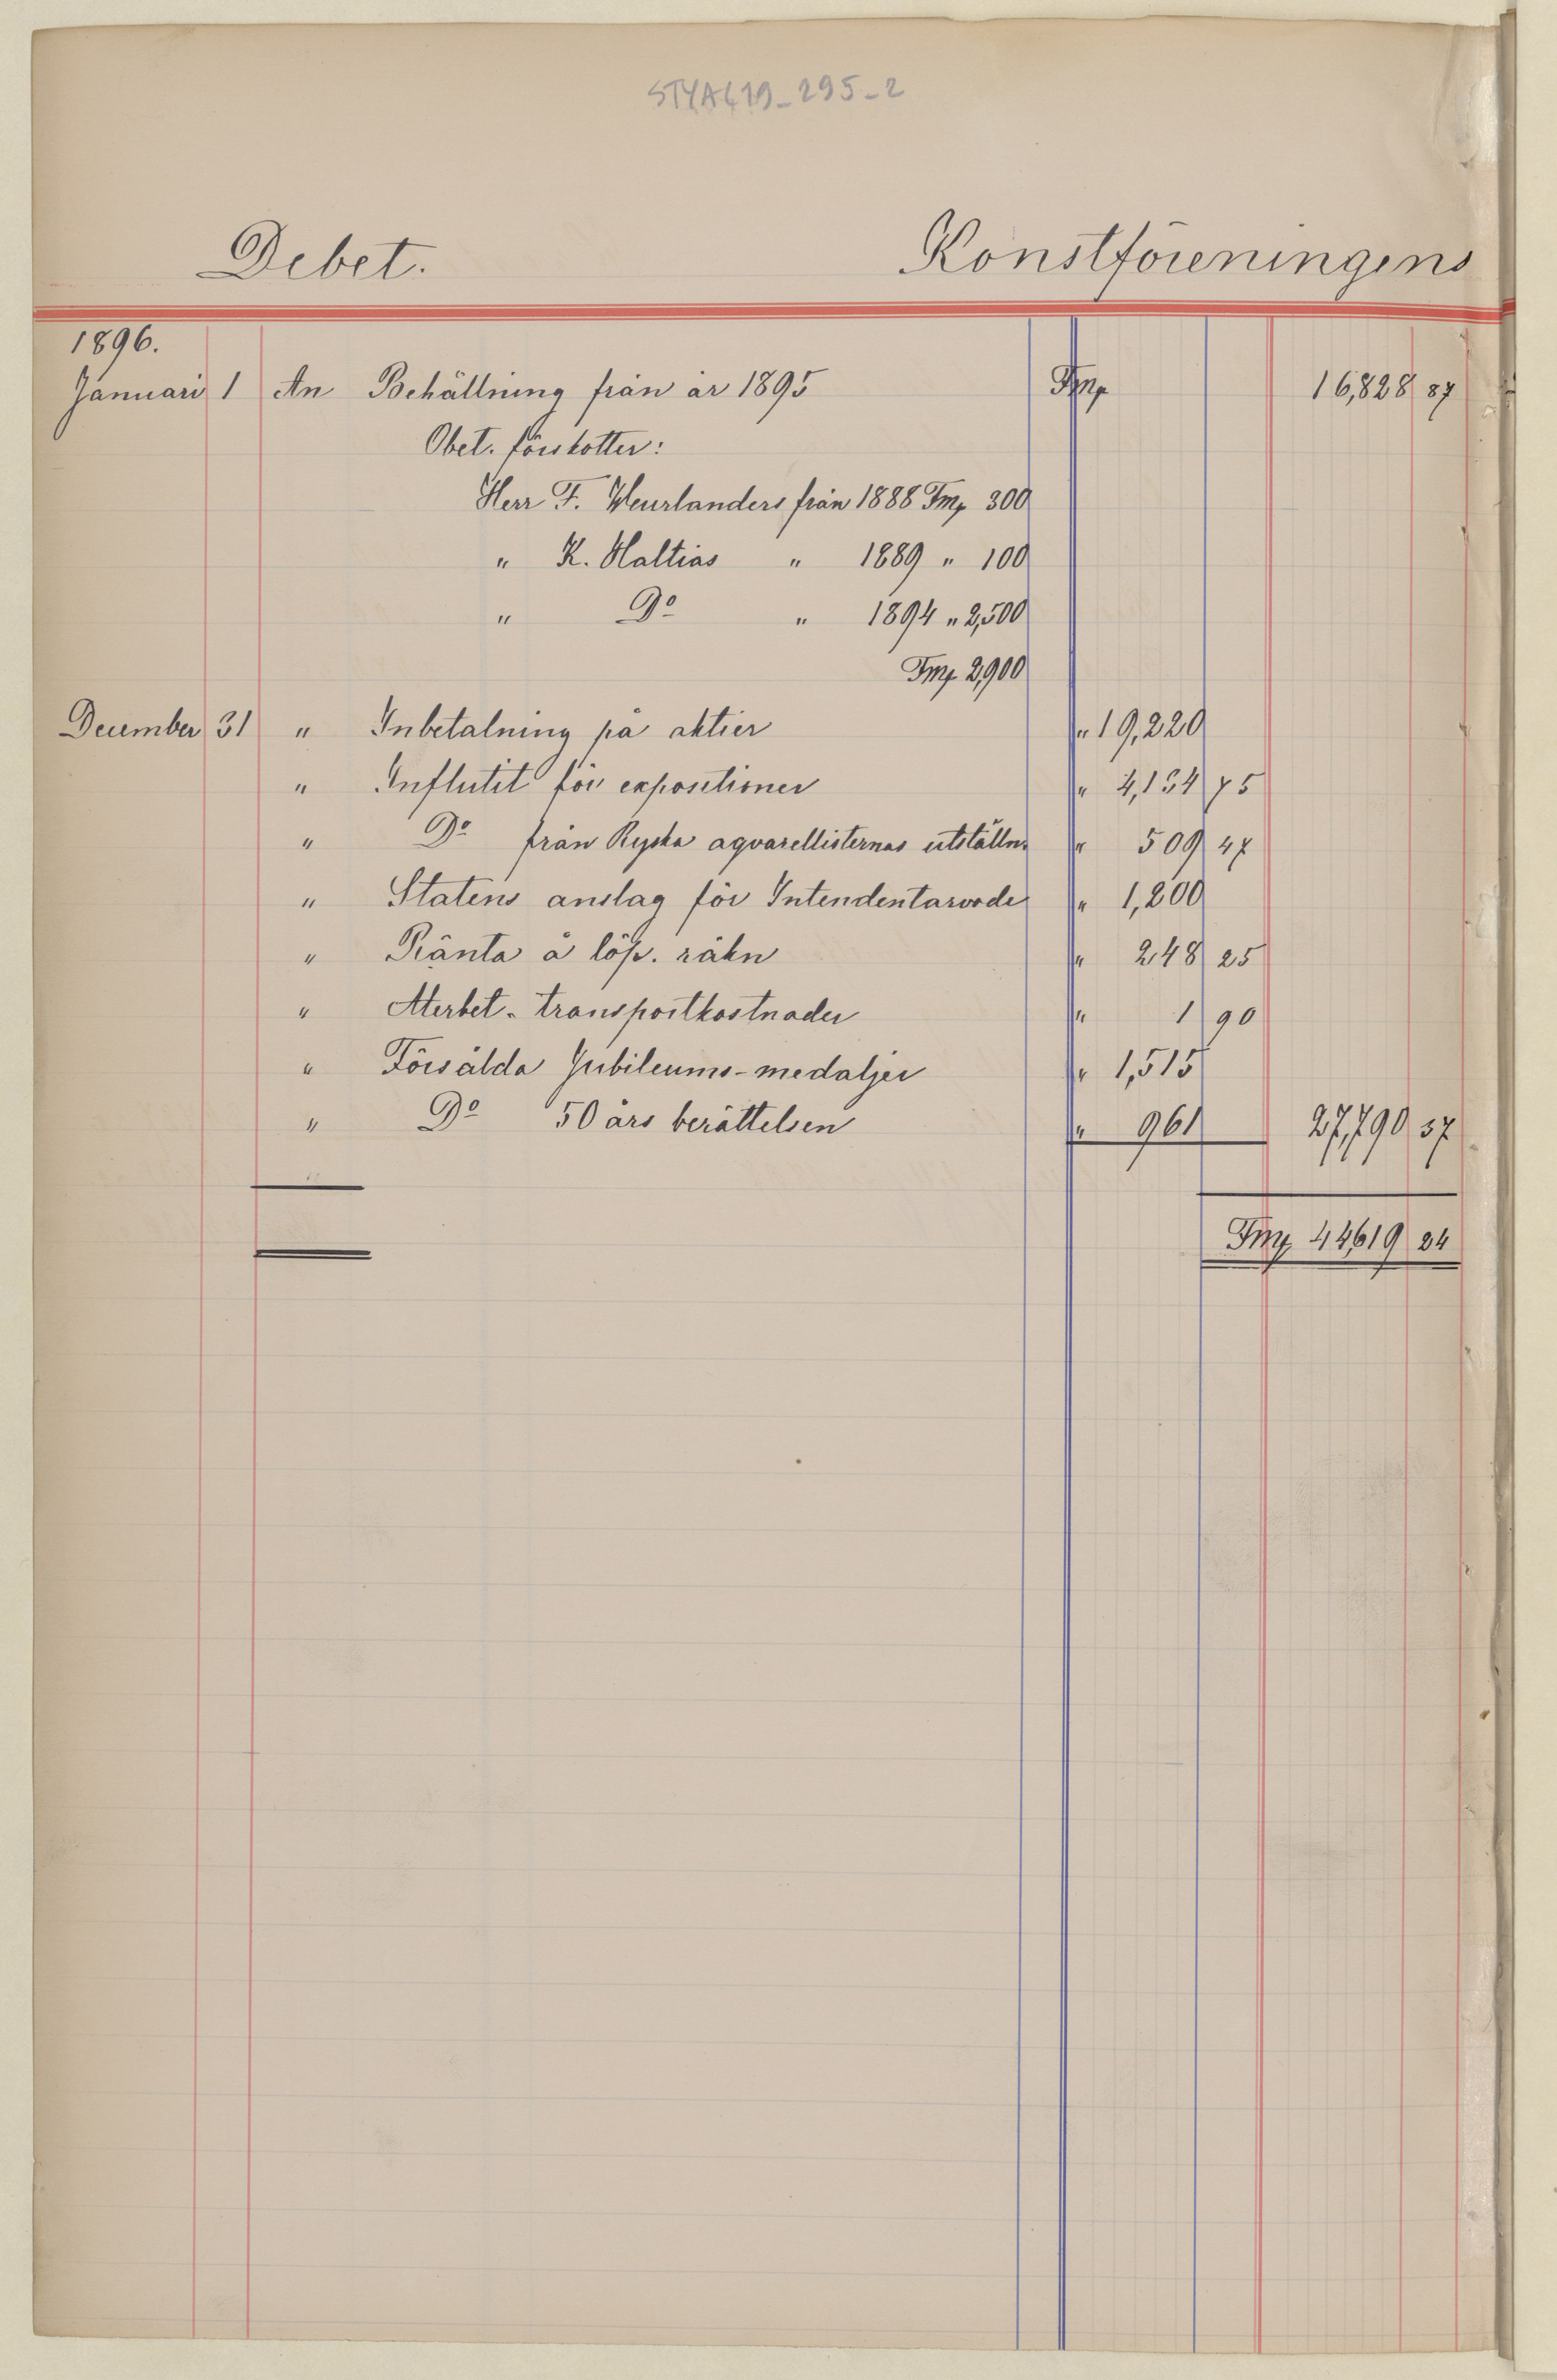 STYA619_295_2
Debet. Konstföreningens
1896.
Januari 1 An Behållning från år 1895 Fmp 16,828 87
Obet. förskotter:
Herr F. Weurlanders från 1888 Fmp 300
" K. Haltias " 1889 " 100
" Do " 1894 " 2,500
Fmp 2,900
December 31 " Inbetalning på aktier " 19,220
" Influtit för expositioner " 4,134 75
" Do från Ryska aqvarellisternas utställn. " 509 47
" Statens anslag för Intendentarvode " 1,200
" Ränta å löp. räkn " 248 25
" Återbet. transportkostnader " 1 90
" Försålda Jubileums-medaljer " 1,515
" Do 50 års berättelsen " 961 27,790 37
Fmp 44619 24